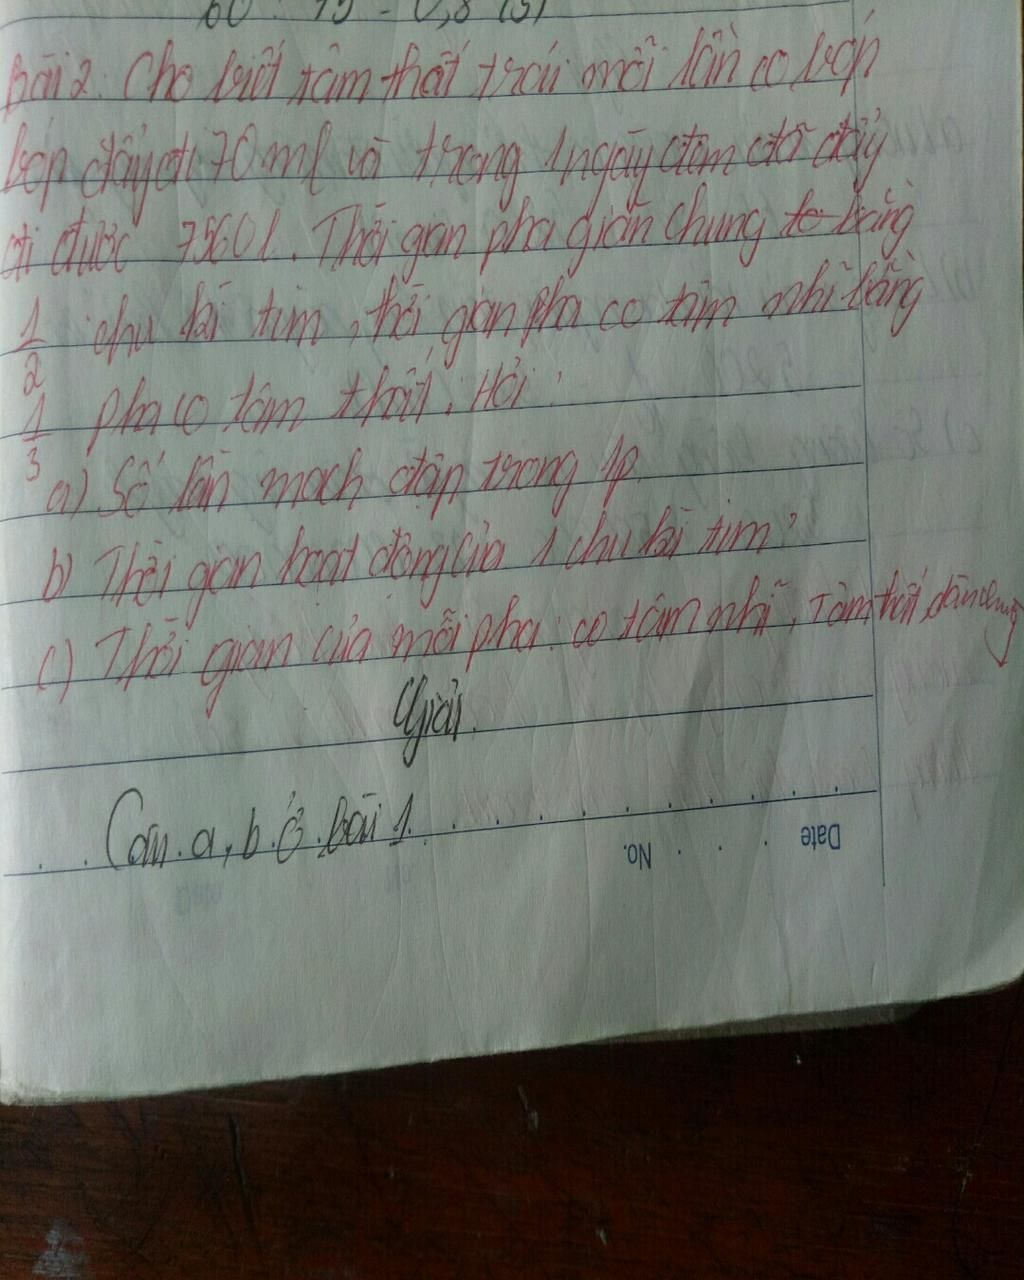 60 : 75 = 0,8 (s)
Bài 2: Cho biết tâm thất trái mỗi lần co bóp
bóp đẩy đi 70 ml và trong 1 ngày đêm đã đẩy
đi được 7560 l. Thời gian pha giãn chung to bằng
1/2 chu kì tim, thời gian pha co tâm nhĩ bằng
1/3 pha co tâm thất. Hỏi:
a) Số lần mạch đập trong 1p.
b) Thời gian hoạt động của 1 chu kì tim?
c) Thời gian của mỗi pha: co tâm nhĩ, tâm thất, dãn chung
Giải.
Câu a, b ở Bài 1
No.
Date